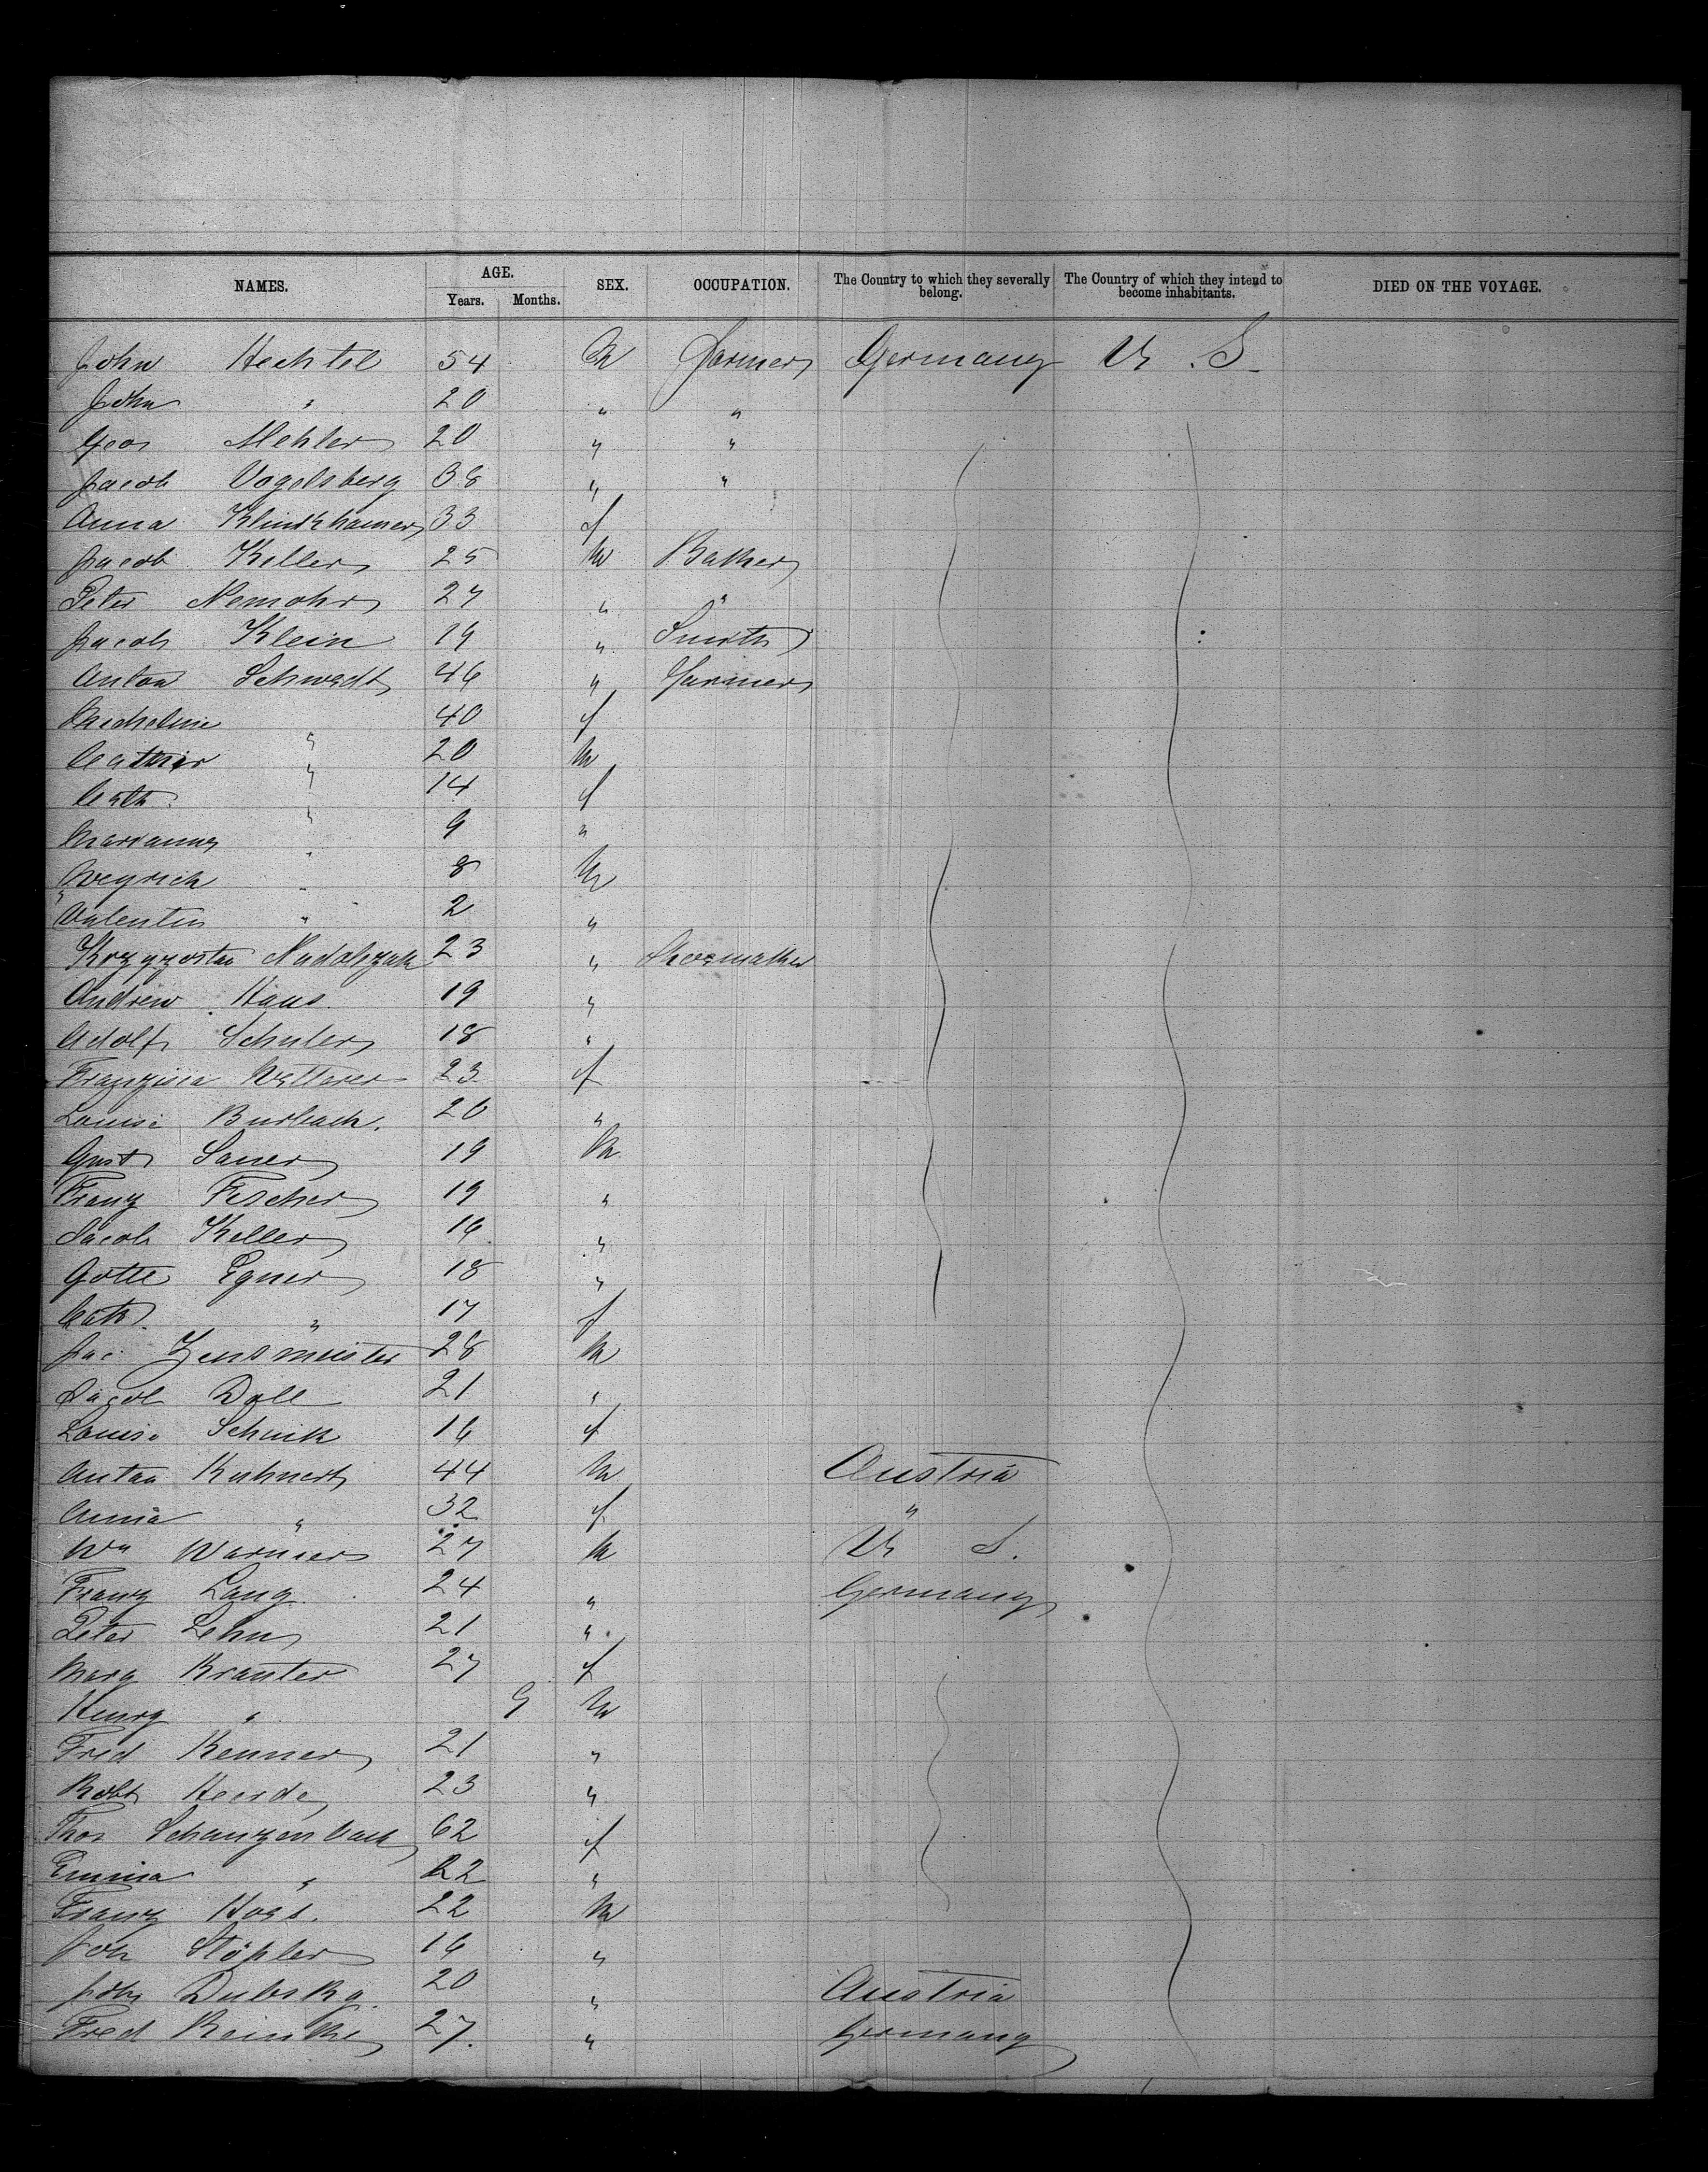 NAMES. AGE. SEX. OCCUPATION. The Country to which they severally belong. The Country of which they intend to become inhabitants. DIED ON THE VOYAGE.
Years. Months.
John Hechtel 54 M Farmer Germany U. S.
John " 20 " "
Geo Mehler 20 " "
Jacob Vogelsberg 38 " "
Anna Klinkhamer 33 f
Jacob Keller 25 M Baker
Peter Nemohr 27 " "
Jacob Klein 19 " Smith
Anton Schwedt 46 " Farmer
40 f
" 20 M
Cath. " 14 f
Marianna " 9 "
" 8 M
Valentin " 2 "
23 " Shoemaker
Andrew Haus 19 "
Adolf Schuler 18 "
23 f
Louise Burbach. 20 "
Gust Sauer 19 M
Franz Fischer 19 "
Jacob Keller 16 "
Egner 18 "
Cath. " 17 f
Jac. Zensmeister 28 M
Jacob Doll 21 "
Louise Schuik 16 f
Anton Kuhnert 44 M Austria
Anna " 32 f "
Wm Warner 27 M U S.
Franz Lang 24 " Germany
Peter Lehn 21 "
Marg Krauter 27 f
Henry " 9 M
Fred Renner 21 "
Robt Heerde 23 "
Schanzenbach 62 f
Emma " 22 "
Franz Hoes. 22 M
Joh Stöpler 16 "
John Dubsky 20 " Austria
Fred Reinke 27. " Germany